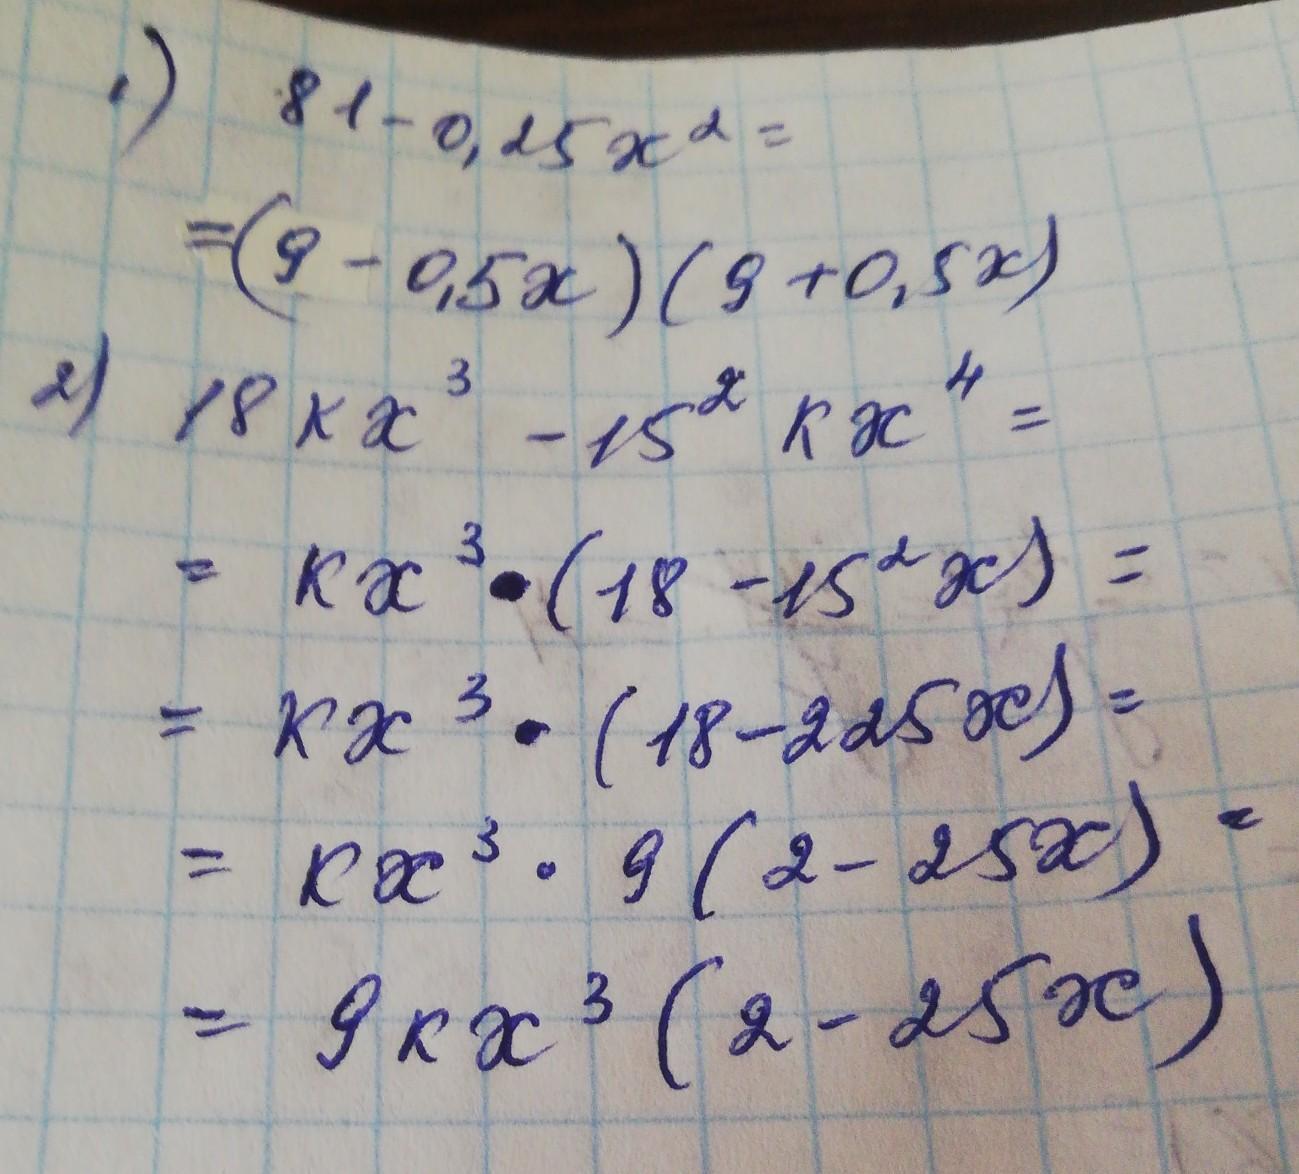 1) 81 - 0,25x² =
= (9 - 0,5x) (9 + 0,5x)
2) 18кx³ - 15² кx⁴ =
= кx³ • (18 - 15²x) =
= кx³ • (18 - 225x) =
= кx³ · 9 (2 - 25x) =
= 9кx³ (2 - 25x)